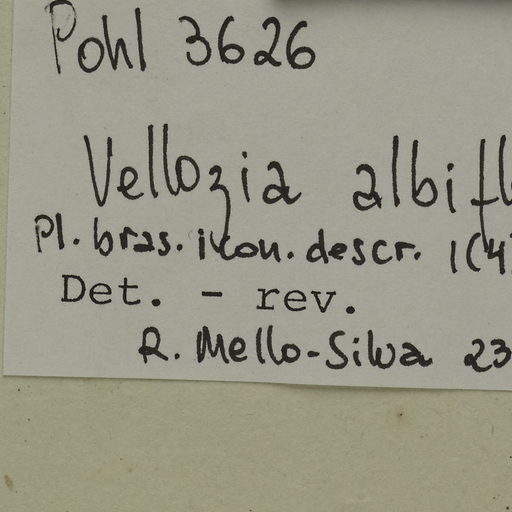 Pohl 3626
Vellozia albifl
Pl. bras. icon. descr. 1(4)
Det. - rev.
R. Mello-Silva 23